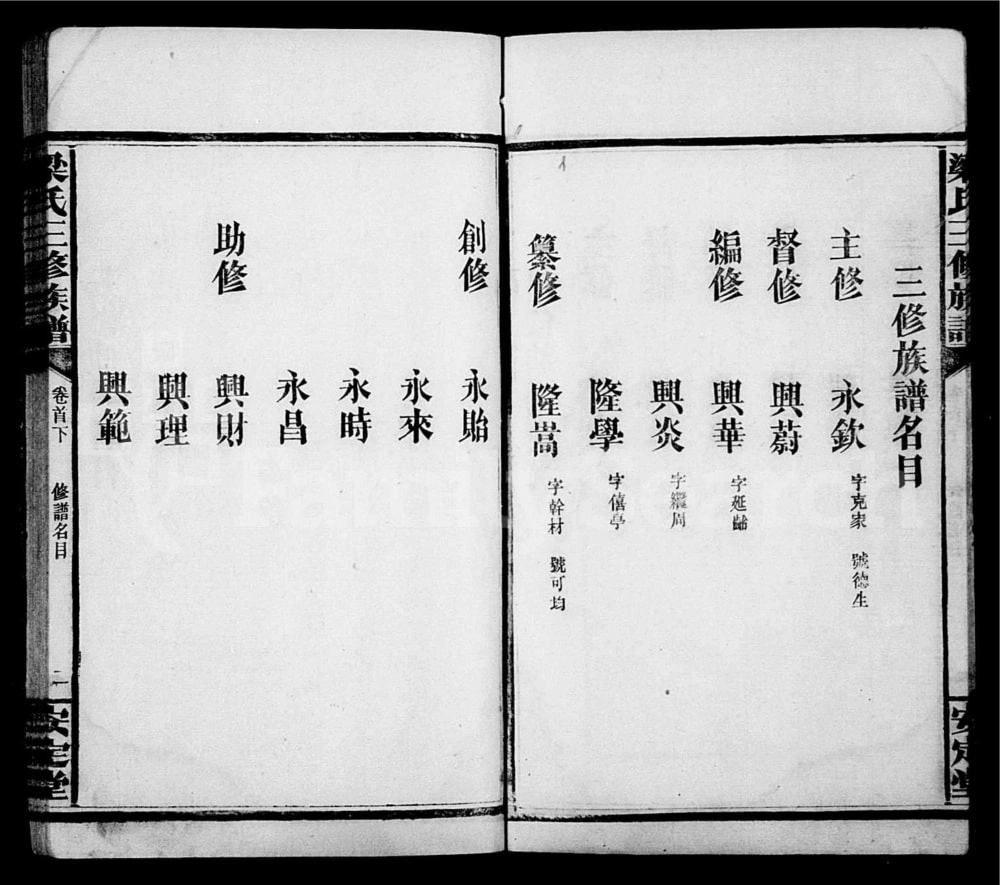 梁氏三修族譜
安定堂
三修族譜名目
主修 永欽 字克家 號德生
督修 興蔚
編修 興華 字延齡
興炎 字繼周
隆學 字僖亭
纂修 隆嵩 字幹材 號可均
創修 永貽
永來
永時
永昌
助修 興財
興理
興範
梁氏三修族譜 卷首下 修譜名目 二 安定堂